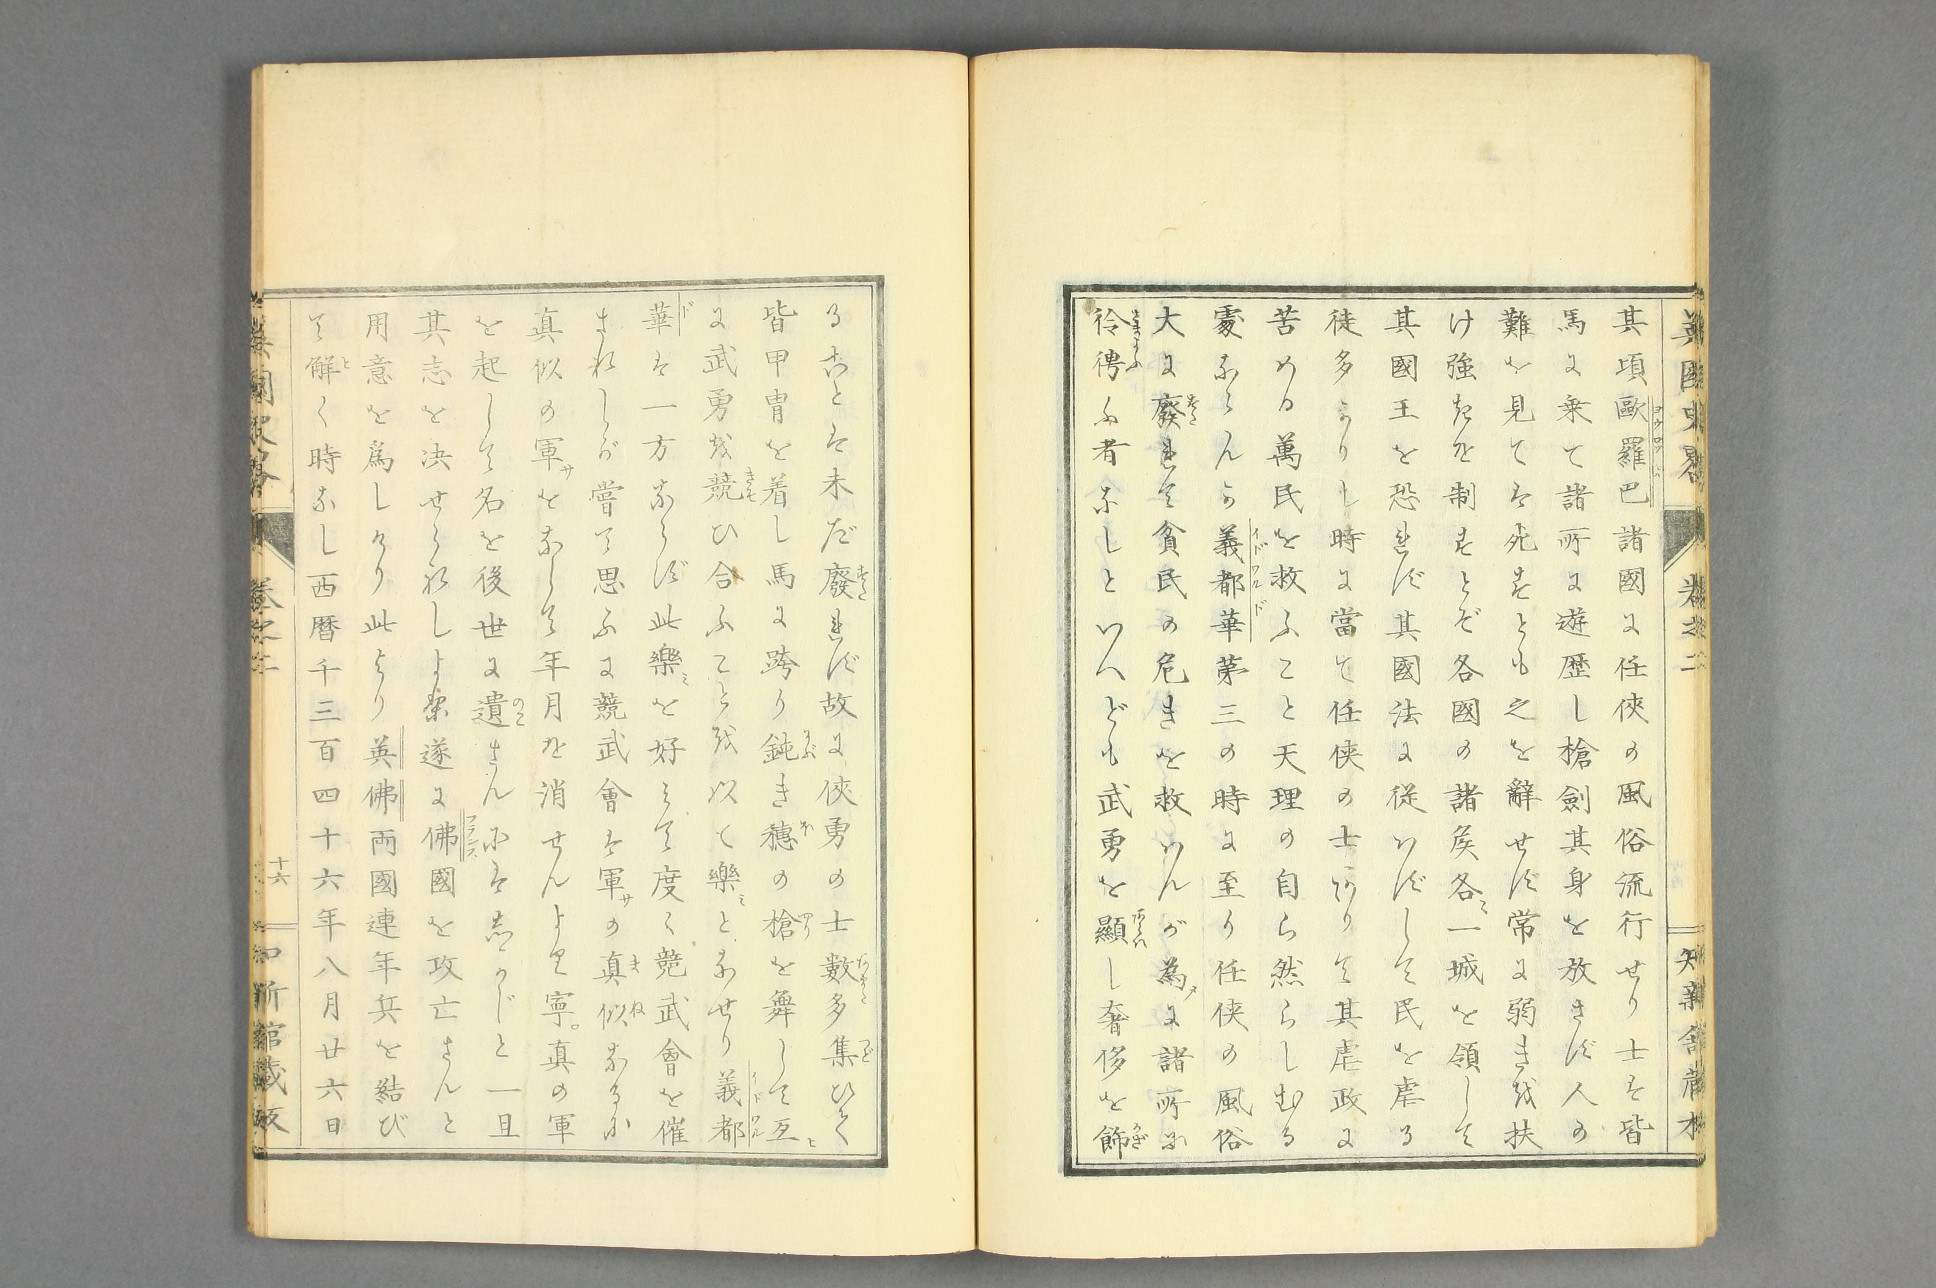 英國史畧
卷之二
知新舘藏板
其頃歐羅巴諸國に任俠の風俗流行せり士は皆
馬に乗て諸所に遊歴し槍劍其身を放さず人の
難を見ては死すとも之を辭せず常に弱きを扶
け強きを制すとぞ各國の諸矦各〻一城を領して
其國王を恐れず其國法に從はずして民を虐る
徒多かりし時に當て任俠の士ありて其虐政に
苦める萬民を救ふこと天理の自ら然らしむる
處ならんか義都華第三の時に至り任俠の風俗
大に廢れて貧民の危きを救はんが為に諸所に
彾俜ふ者なしといへども武勇を顯し奢侈を飾
ることは未だ廢れず故に俠勇の士數多集ひて
皆甲冑を着し馬に跨り鈍き穗の槍を舞して互
に武勇を競ひ合ふことを以て樂〻となせり義都
華は一方ならず此樂〻を好みて度〻競武會を催
されしが嘗て思ふに競武會は軍の真似なるに
真似の軍を なして年月を消せんより寧真の軍
を起して名を後世に遺さんには若かじと一旦
其志を決せられしより遂に佛國を攻亡さんと
用意を為しけり此より英佛兩國連年兵を結び
て解く時なし西暦千三百四十六年八月廿六日
英國史畧
卷之二
十六
知新館藏板